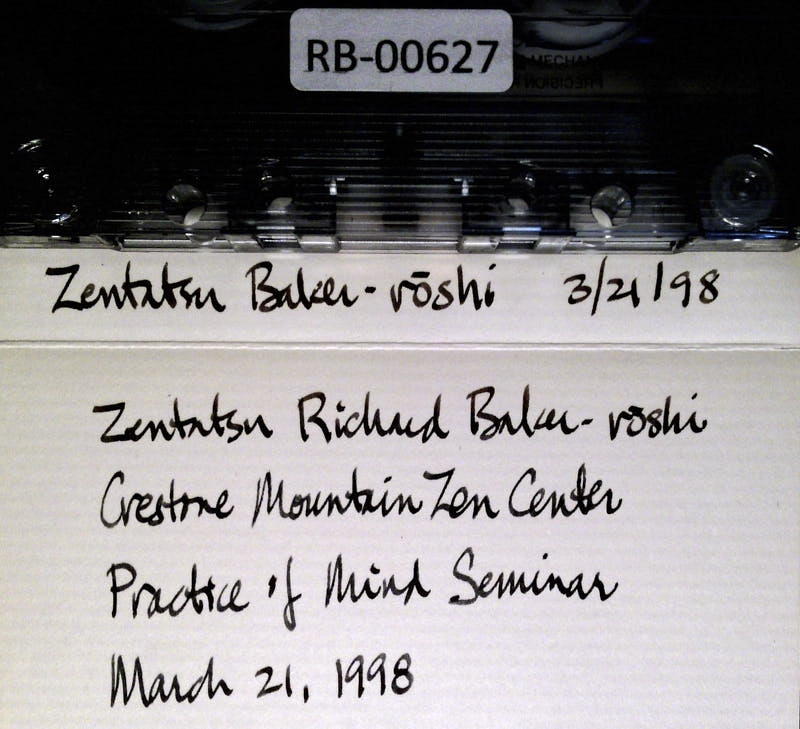 RB-00627
MECHAN
PRECISION
Zentatsu Baker-rōshi 3/21/98
Zentatsu Richard Baker-rōshi
Crestone Mountain Zen Center
Practice of Mind Seminar
March 21, 1998